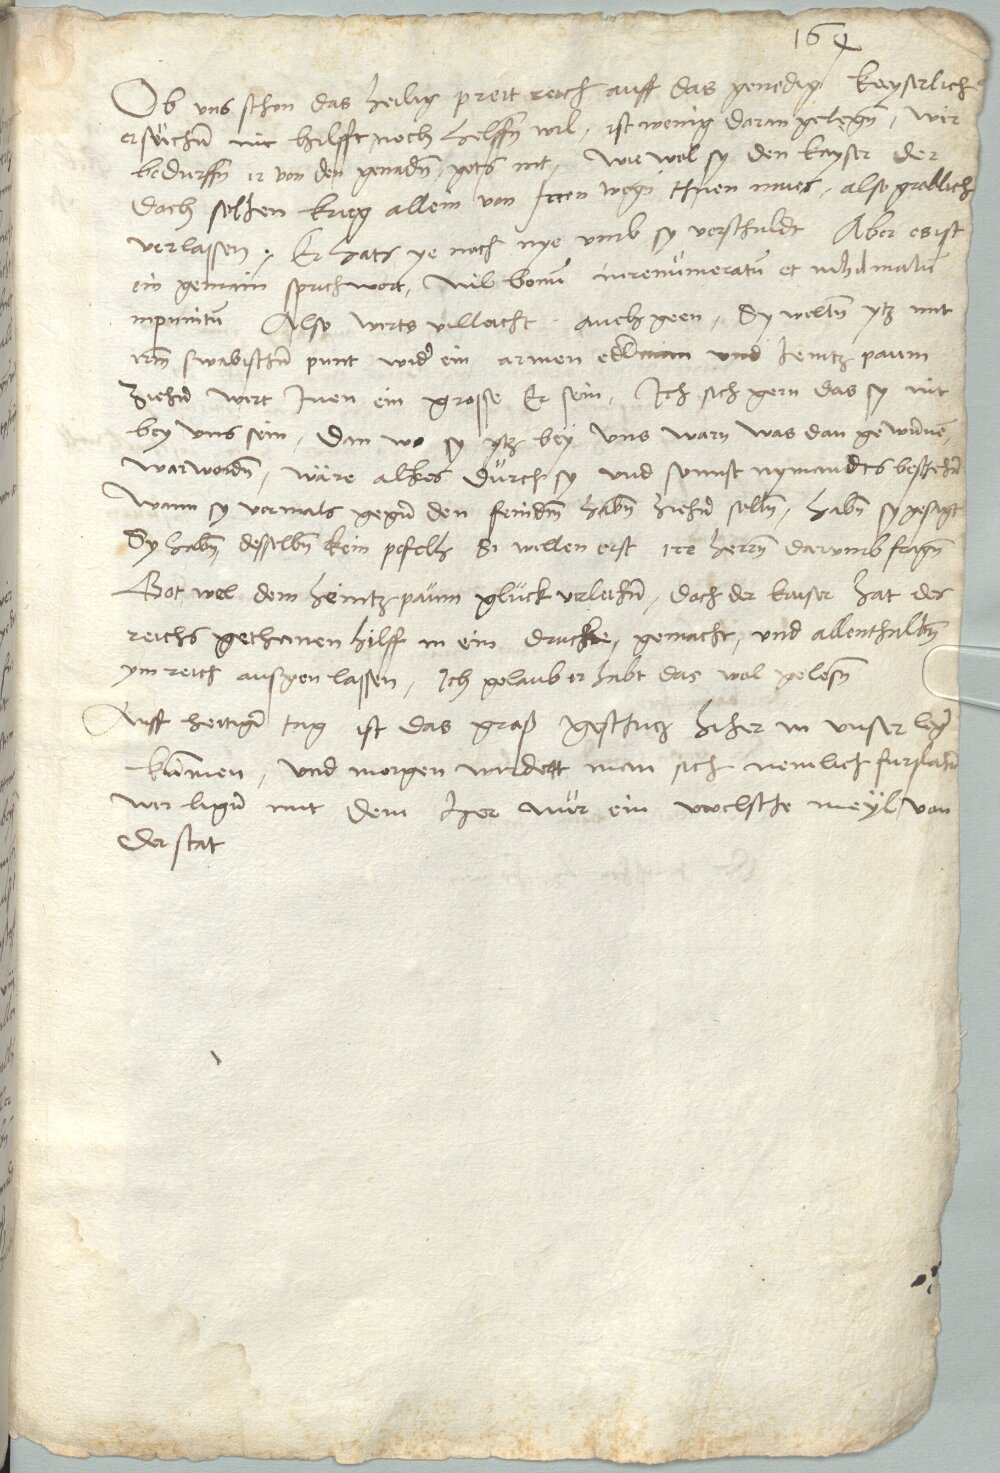 164
Ob uns schon das heilig preit reich auff das genedig kayserlich
ersuchen nie hilfft noch helffn wil, ist wenig daran gelegn, wir
bedurffn ir von den genadn gots nit, Wie wol sy den kayser der
doch solhen krieg allein von iren wegn thuen mues, also groblich
verlassen, Er hats ye noch nye umb sy verschuldt Aber es ist
ein gemain sprichwort, Nil bonu irrenumeratu et nihil malu
inpunitu Also wirts villeicht auch geen, Sy welln ytz mit
irm swabischn punt wider ein armen edlman und heintz paum
ziehn wirt Inen ein grosse Er sein, Ich sich gern das sy nit
bey uns sein, Dan wo sy ytz bey uns warn was dan gewunen
war wordn, wäre alles durch sy und sunnst nymandts beschehn
Wann sy vormals gegn den feindn habn ziehn solln, habn sy gesagt
Sy habn desselbn kein pefelh Si willen erst ire herrn darumb fragn
Got wel dem heintz paum gluck verleihn, doch der kaiser hat des
reichs gethanen hilff in ein druckh, gemacht, und allenthalbn
ym reich außgen lassen, Ich gelaub ir habt das wol gelesn
Auff heitign tag ist das groß geschutz hiher in unser leger
kumen, und morgen wirdett man sich nemlich furslahn
wir lign mit dem her nur ein welsche meyl von
der stat